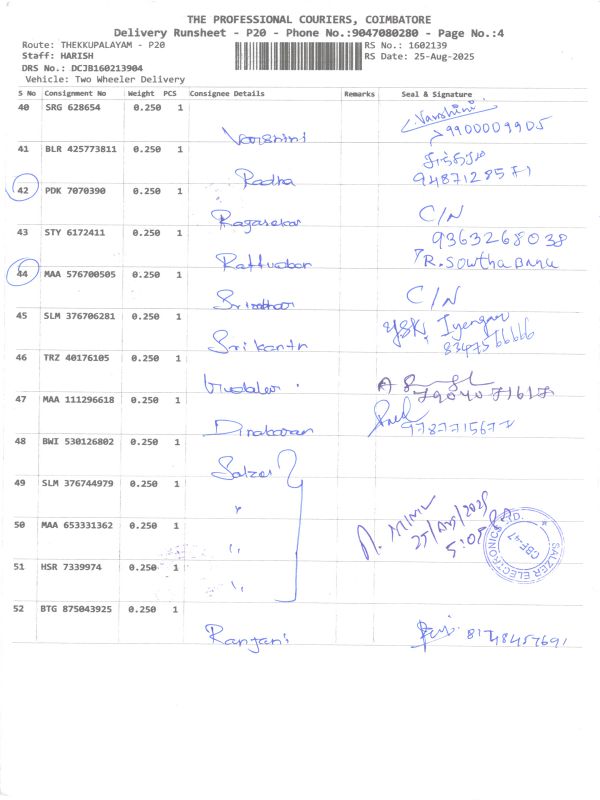 THE PROFESSIONAL COURIERS, COIMBATORE
Delivery Runsheet - P20 - Phone No.:9047080280 - Page No.:4
Route: THEKKUPALAYAM - P20
RS No.: 1602139
Staff: HARISH
RS Date: 25-Aug-2025
DRS No.: DCJB160213904
Vehicle: Two Wheeler Delivery
S No Consignment No Weight PCS Consignee Details Remarks Seal & Signature
40 SRG 628654 0.250 1
Varshini Varshini 9900009905
41 BLR 425773811 0.250 1
Radha 9487128571
42 PDK 7070390 0.250 1
Ragasekar C/N
43 STY 6172411 0.250 1
9363268038
R. Sowtha Banu
44 MAA 576700505 0.250 1
Sridhar C/N
45 SLM 376706281 0.250 1
Srikanth Iyengar
46 TRZ 40176105 0.250 1
47 MAA 111296618 0.250 1
Dinakaran
48 BWI 530126802 0.250 1
Salzer
49 SLM 376744979 0.250 1
"
50 MAA 653331362 0.250 1
"
51 HSR 7339974 0.250 1
"
25/Aug/2025
5:05
SALZER ELECTRONICS LTD.
CBE-47
52 BTG 875043925 0.250 1
Ranjani 8148457691